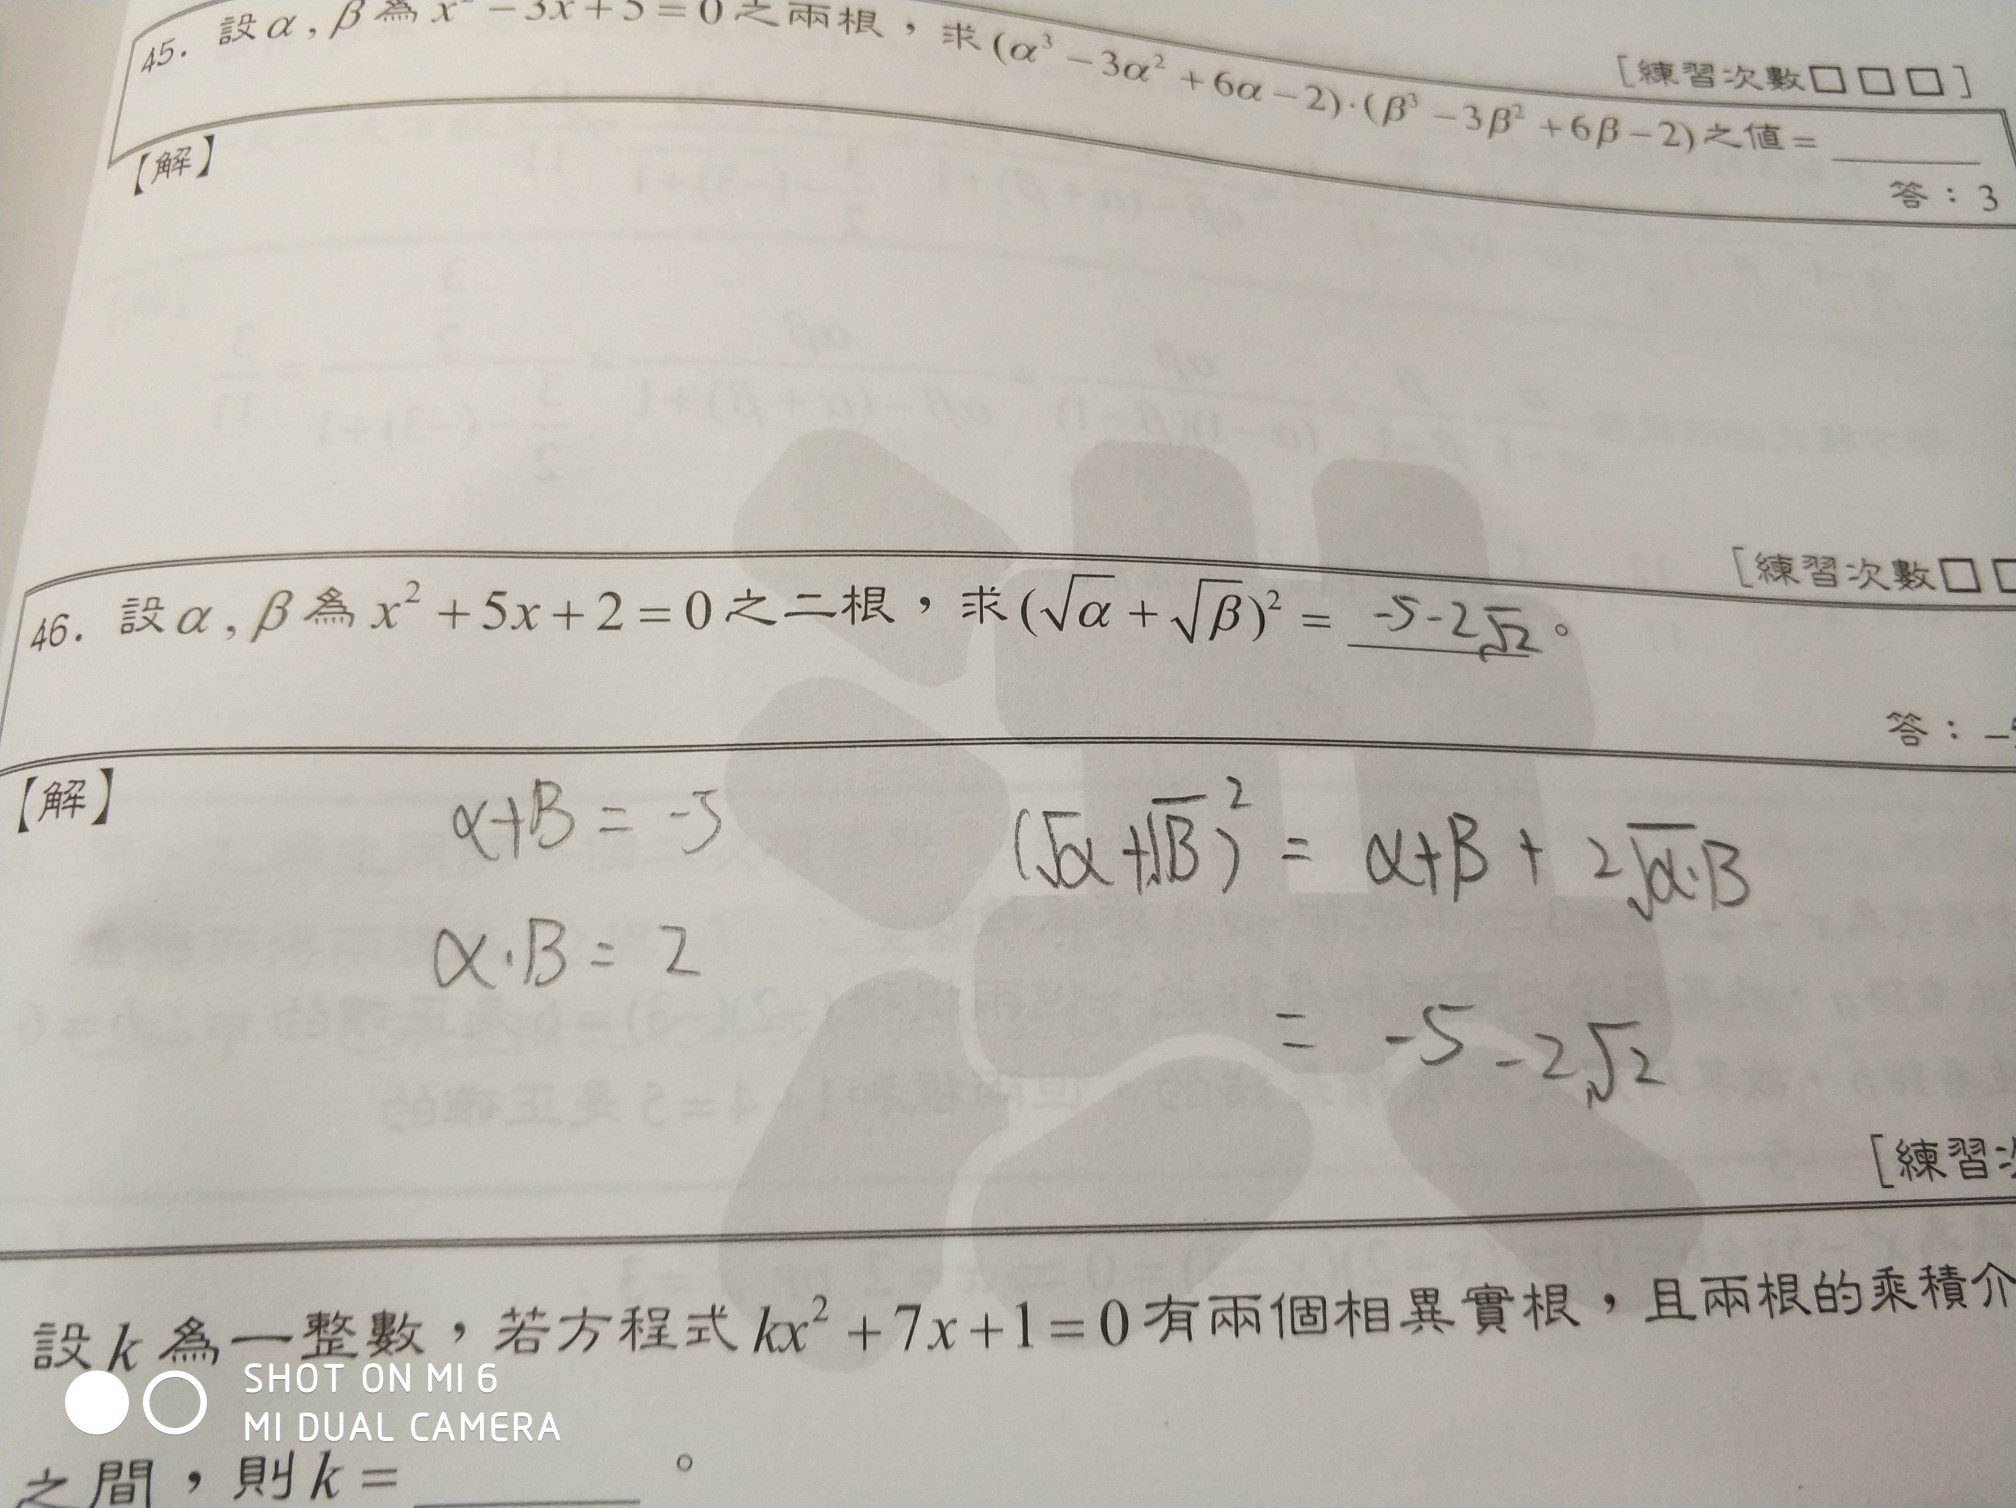 45. 設α, β為x² − 3x + 5 = 0之兩根，求(α³ − 3α² + 6α − 2)·(β³ − 3β² + 6β − 2)之值 = ______
[練習次數□□□]
答：3
【解】
[練習次數□□
46. 設α, β為x² + 5x + 2 = 0之二根，求(√α + √β)² = -5-2√2。
答：−5
【解】
α+β = -5
(√α+√β)² = α+β + 2√α·β
α·β = 2
= -5-2√2
[練習次
設k為一整數，若方程式kx² + 7x + 1 = 0有兩個相異實根，且兩根的乘積介
之間，則k = ______。
SHOT ON MI 6
MI DUAL CAMERA